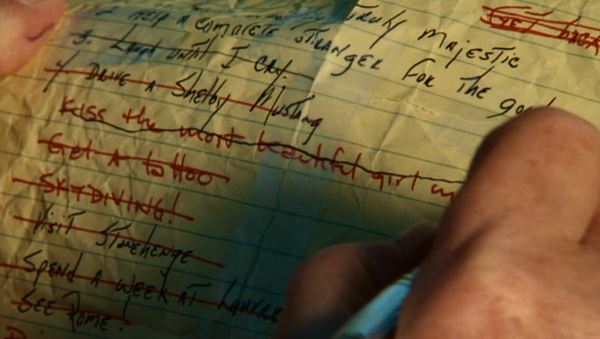 HELP A COMPLETE STRANGER FOR THE GOOD
TRULY MAJESTIC
3. LAUGH UNTIL I CRY.
4. DRIVE A SHELBY MUSTANG
KISS the most beautiful girl
Get A tattoo
SKYDIVING!
Visit STONEHENGE
SPEND A WEEK AT LOUVRE
SEE ROME!
GET BACK